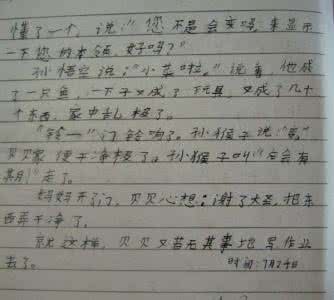 懂了一个，说："您不是会变吗，来显示
一下您的本领，好吗？"
孙悟空说："小菜啦。"说着，他成
了一只鱼，一下子又成了玩具，又成了几十
个东西，家中乱极了。
"铃—"门铃响了。孙猴子说："
贝贝家便干净极了。孙猴子叫"后会有
期"走了。
妈妈开了门，贝贝心想：谢了大圣，把东
西弄干净了。
就这样，贝贝又若无其事地写作业
去了。
时间：7月24日